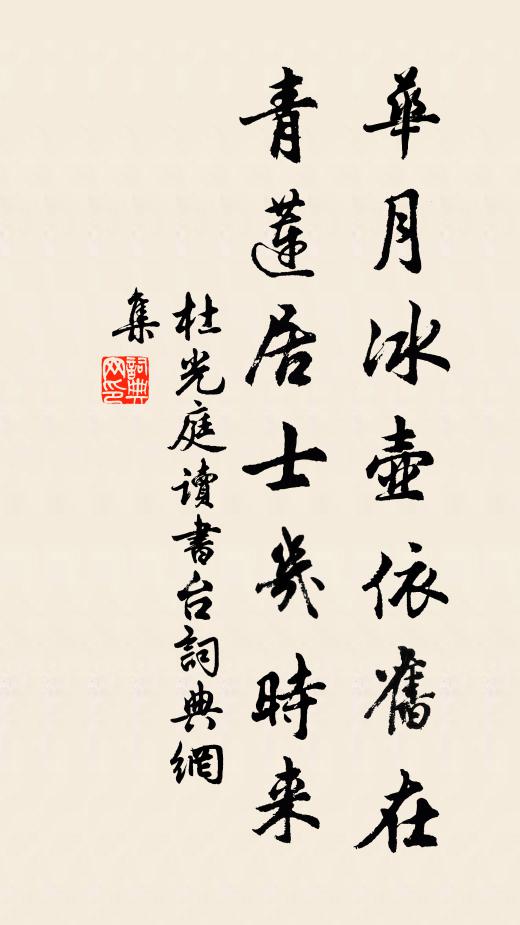 華月冰壺依舊在
青蓮居士幾時来
杜光庭讀書台詞典網
集
詞典網印